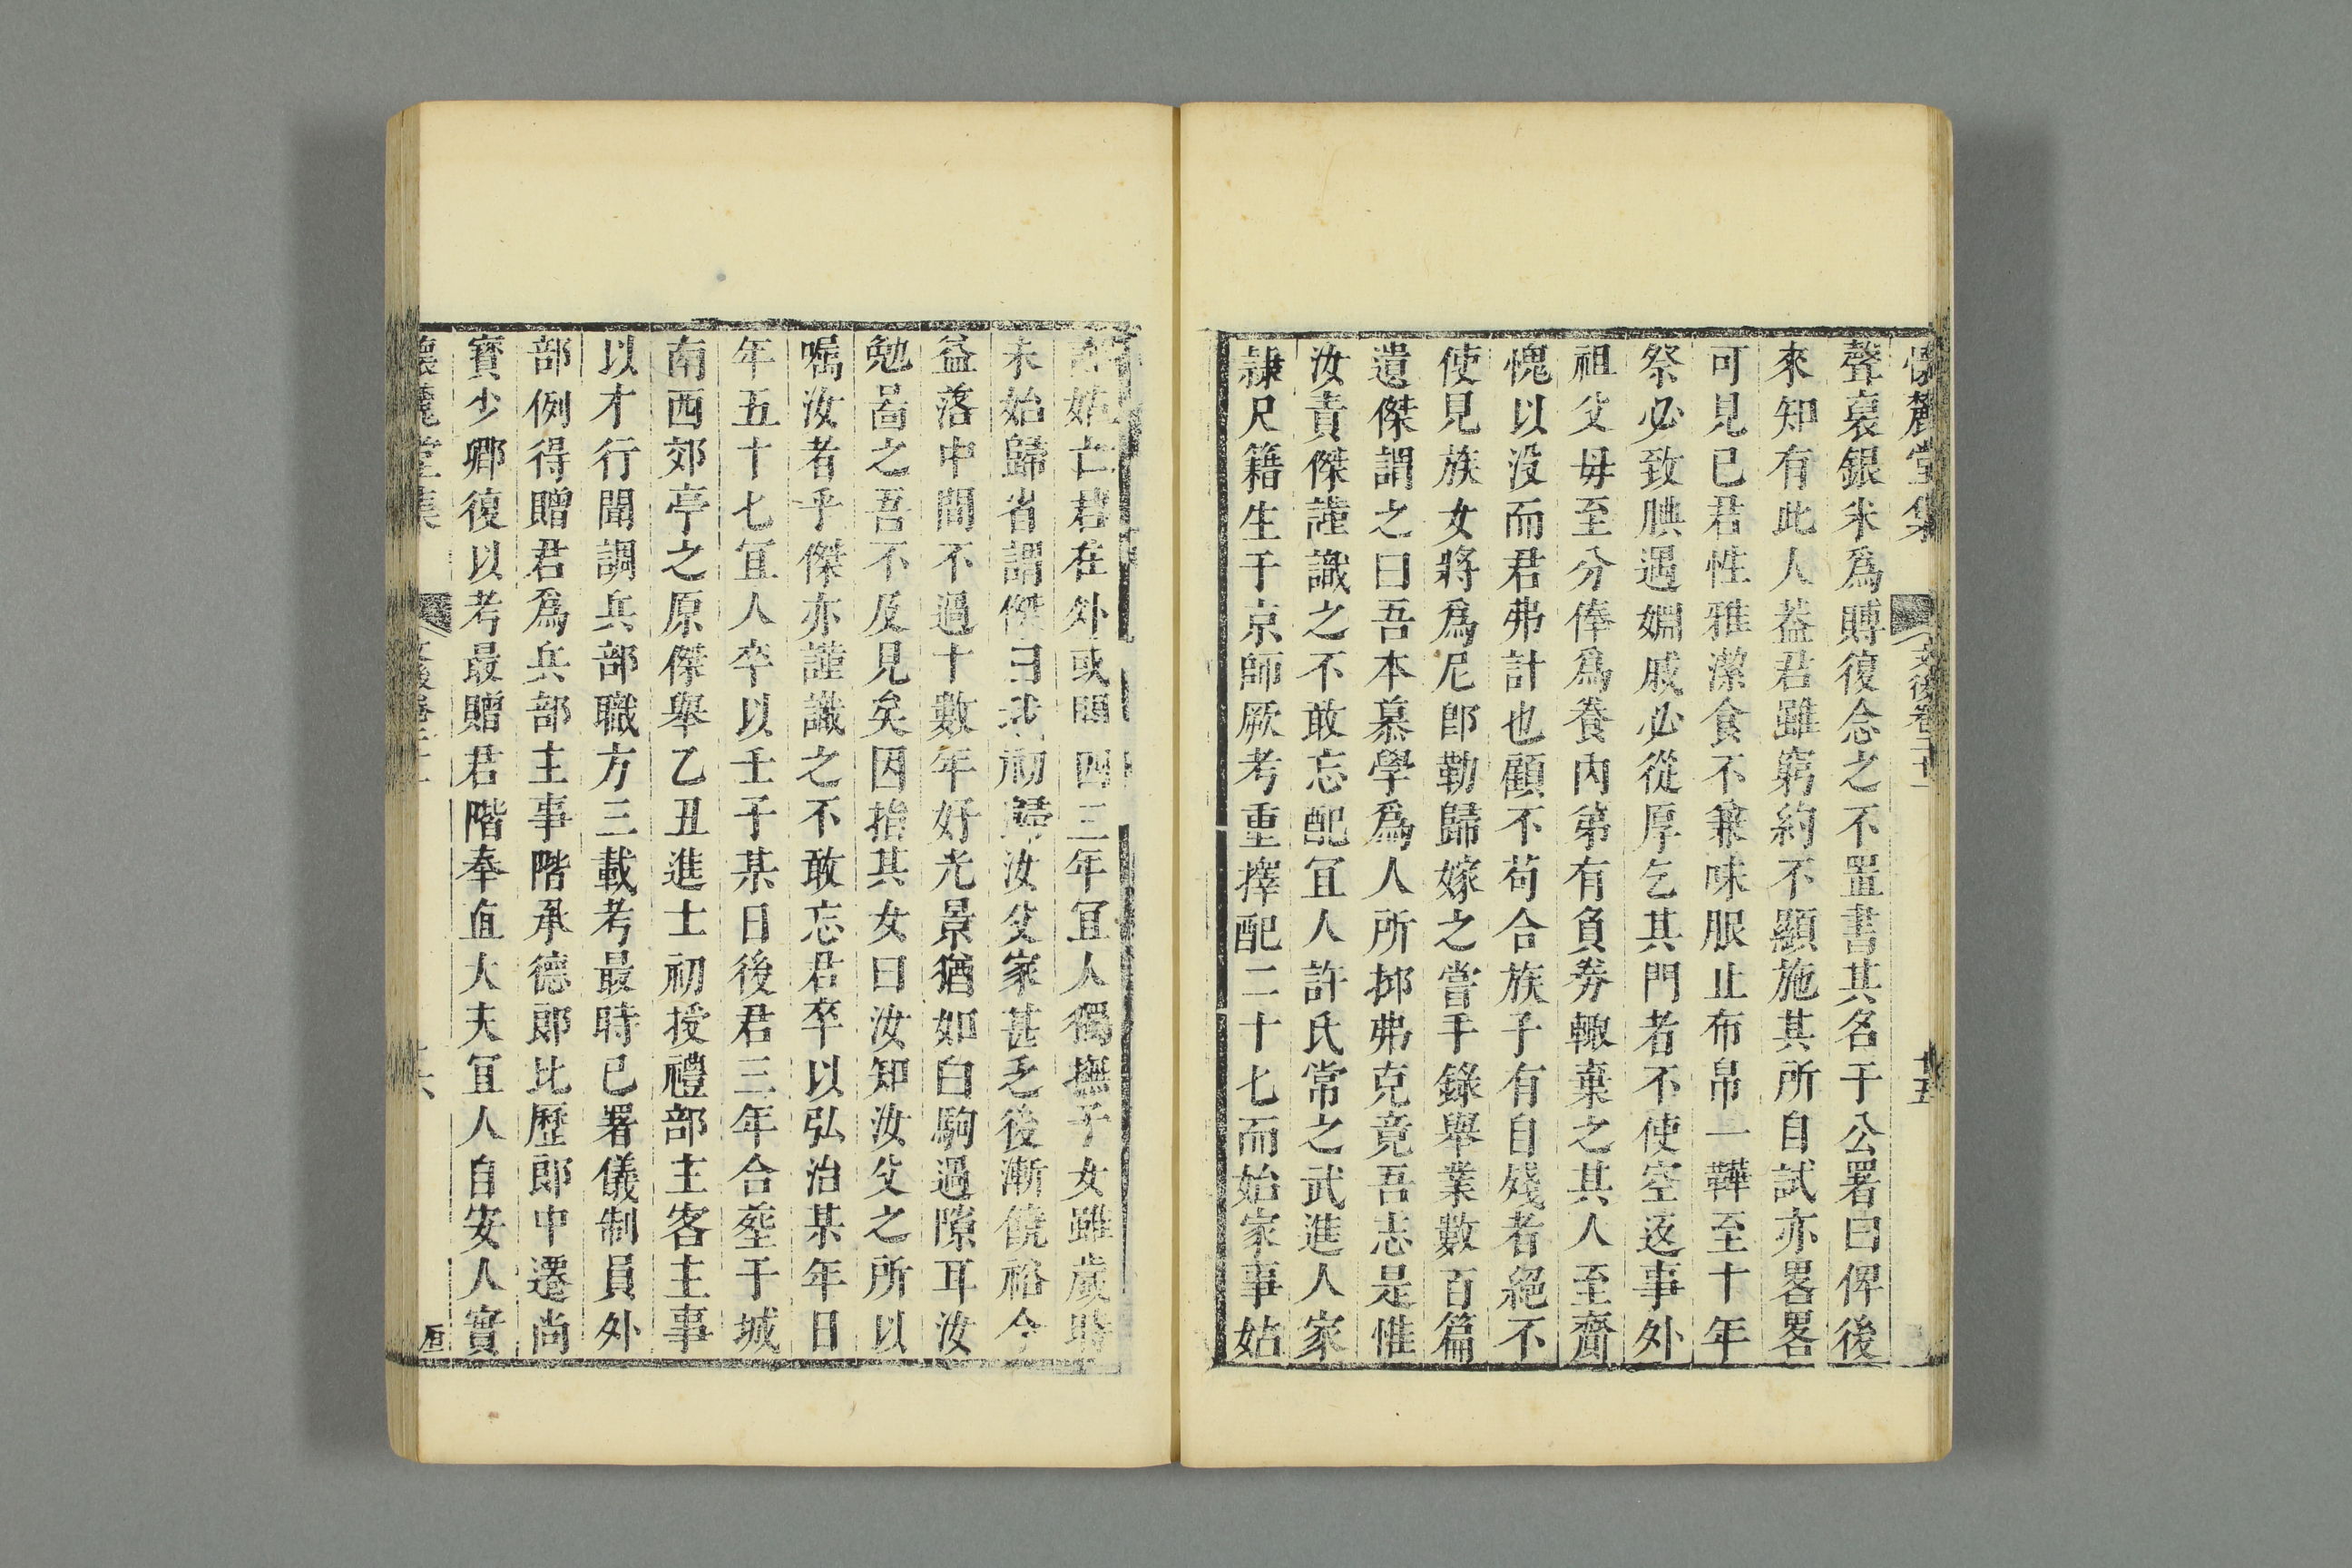 懷麓堂集 文後卷二十一 十五
聲裒銀米爲賻復念之不置書其名于公署曰俾後
來知有此人蓋君雖窮約不顯施其所自試亦畧畧
可見已君性雅潔食不兼味服止布帛一鞾至十年
祭必致腆遇婣戚必從厚乞其門者不使空返事外
祖父母至分俸爲養内弟有負券輙棄之其人至齎
愧以没而君弗計也顧不苟合族子有自殘者絕不
使見族女將爲尼卽勒歸嫁之嘗手錄舉業數百篇
遺傑謂之曰吾本慕學爲人所挷弗克竟吾志是惟
汝責傑謹識之不敢忘配冝人許氏常之武進人家
隷尺籍生于京師厥考重擇配二十七而始家事姑
姑亡君在外或 四三年冝人獨撫子女雖歲時
未始歸省謂傑曰我初歸汝父家甚乏後漸饒裕今
益落中間不過十數年好光景猶如白駒過隙耳汝
勉啚之吾不及見矣因指其女曰汝知汝父之所以
嘱汝者乎傑亦謹識之不敢忘君卒以弘治某年日
年五十七冝人卒以壬子某日後君三年合塟于城
南西郊亭之原傑舉乙丑進士初授禮部主客主事
以才行聞調兵部職方三載考最時已署儀制員外
部例得贈君爲兵部主事階承德郎比歷郎中遷尚
寳少卿復以考最贈君階奉直大夫冝人自安人實
懷麓堂集 文後卷二十一 十六